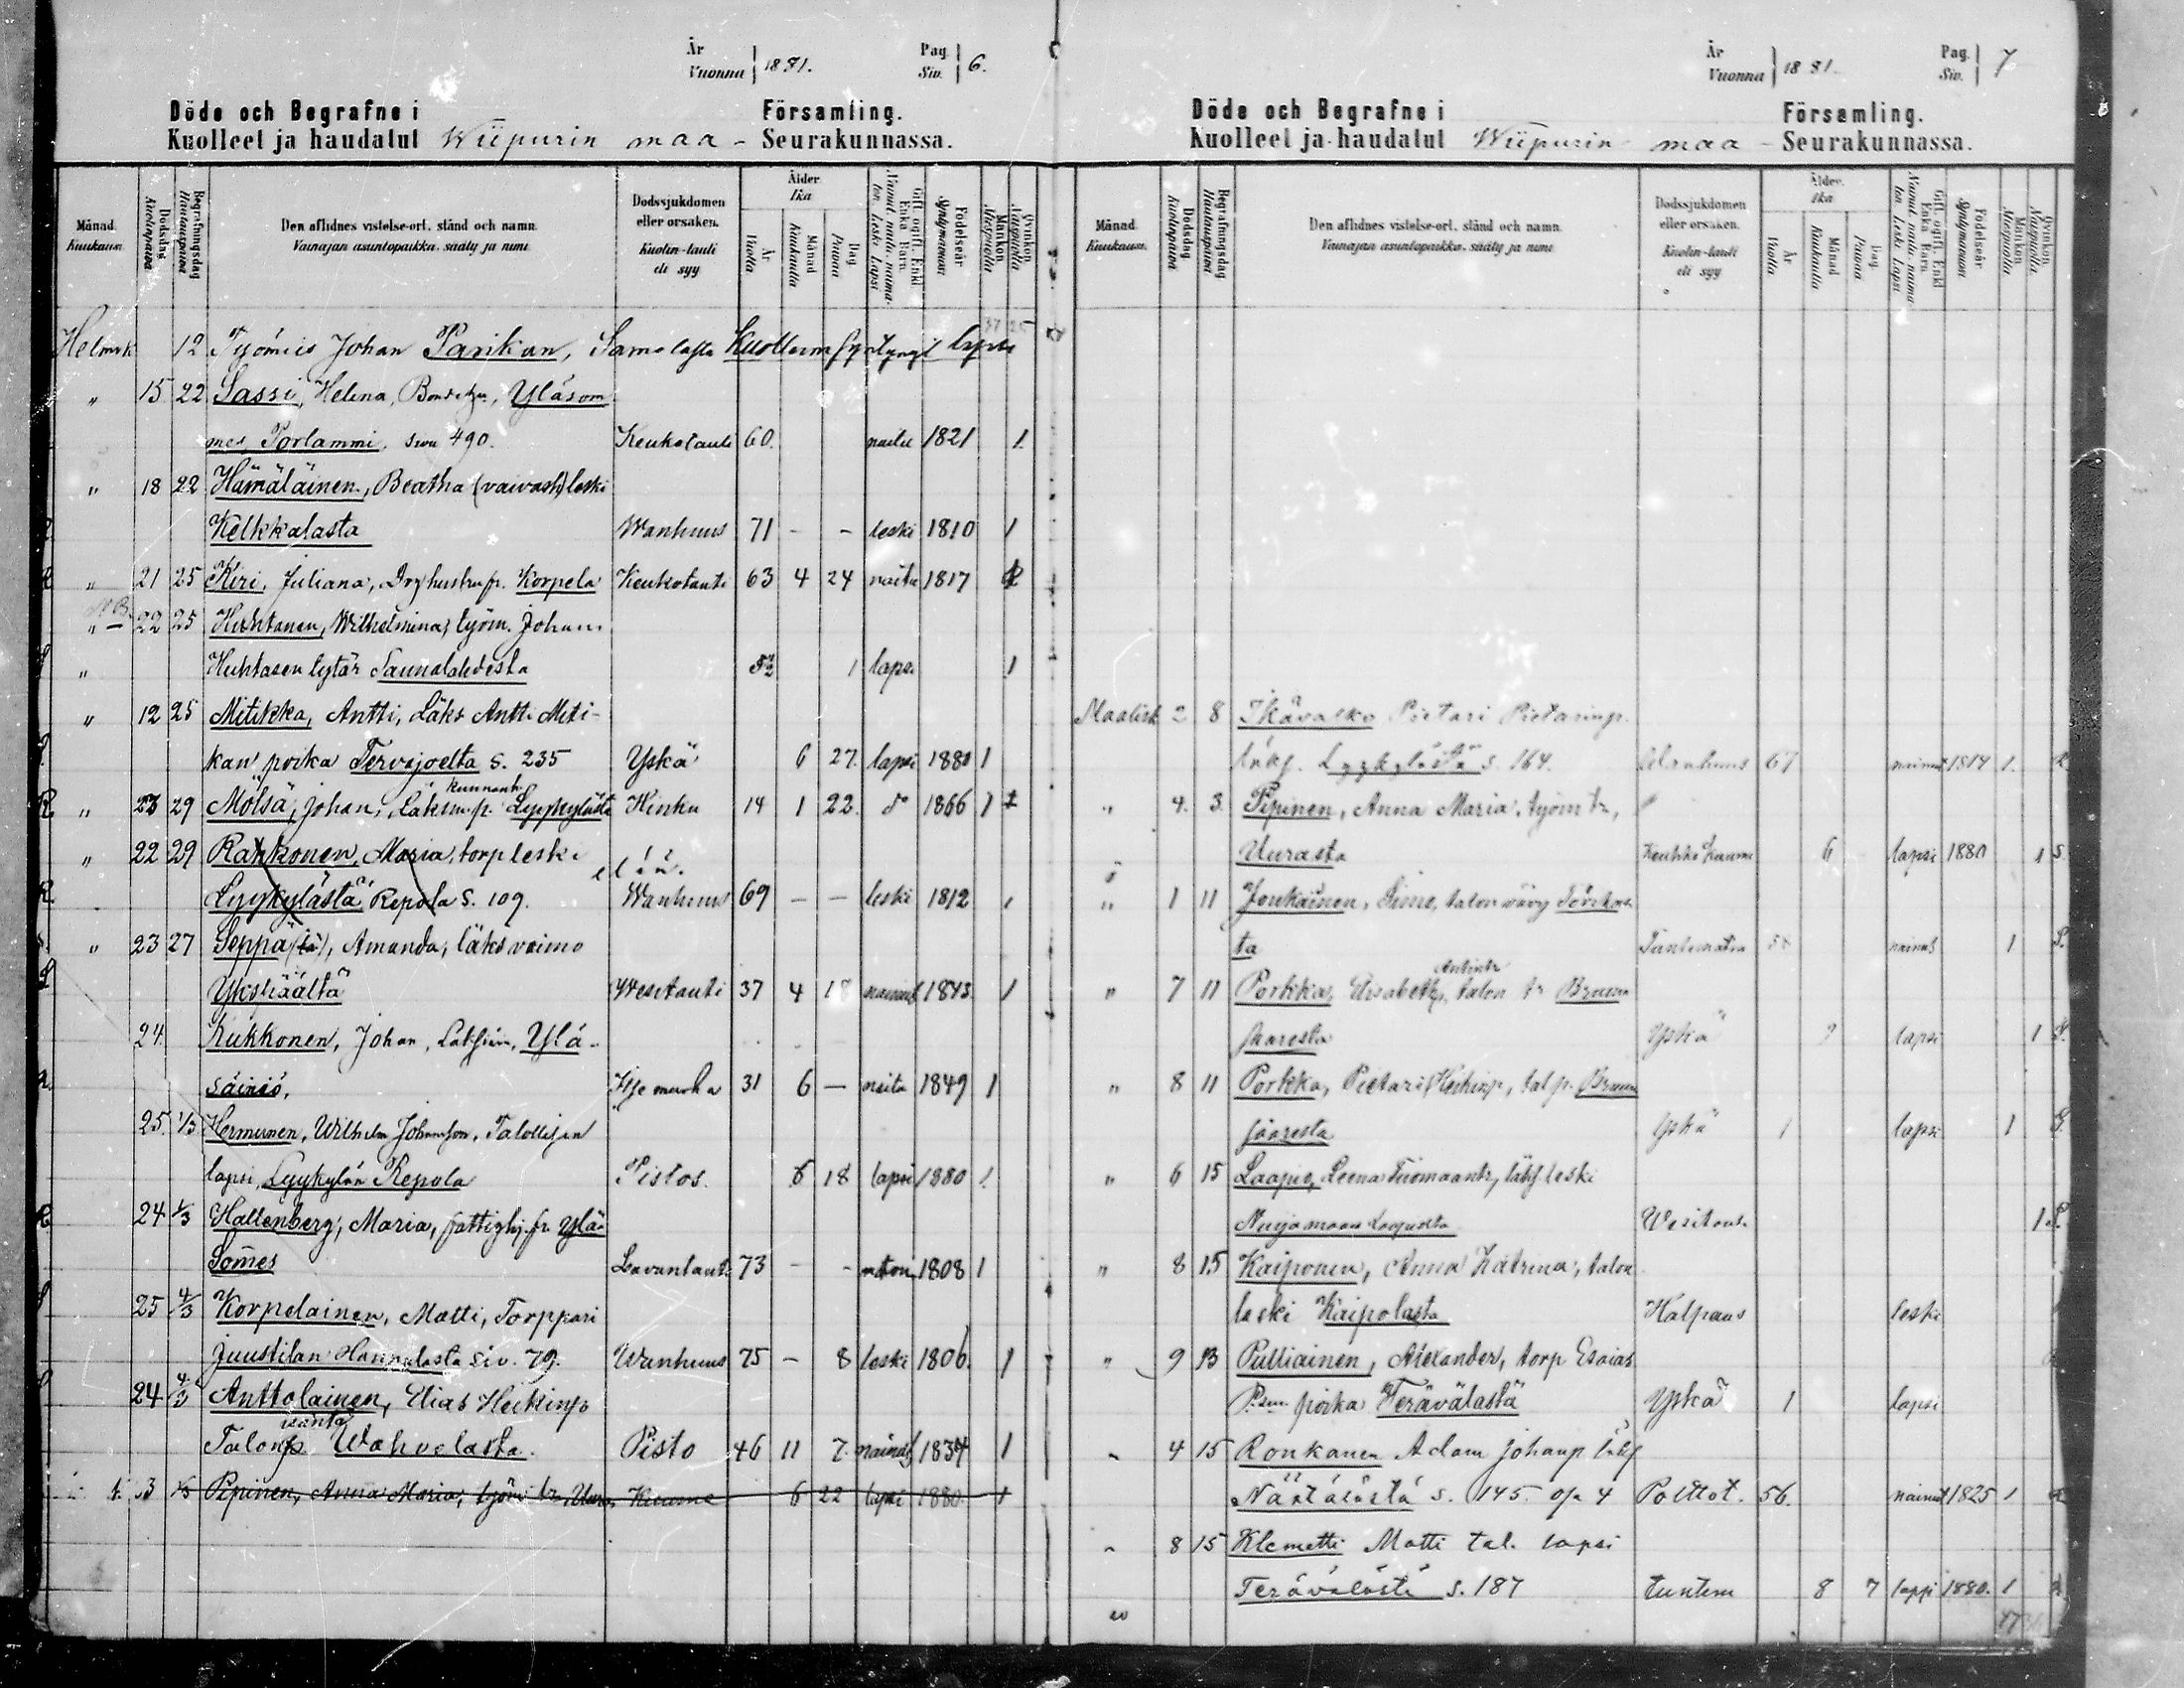 År
Vuonna 1881. Pag. Siv. 6.
Döde och Begrafne i Församling.
Kuolleet ja haudatut Wiipurin maa - Seurakunnassa.
Månad. Kuukausi.
Dödsdag Kuolinpäivä
Begrafningsdag Hautauspäivä
Den aflidnes vistelse-ort, stånd och namn.
Vainajan asuntopaikka, sääty ja nimi.
Dödssjukdomen eller orsaken.
Kuolin-tauti eli syy
Ålder Ikä
År Vuotta
Månad Kuukautta
Dag Päivää
Gift, ogift, Enkl. Enka Barn.
Nainut, naitu, naimaton, Leski, Lapsi
Födelseår Syntymävuosi
Mankön. Miespuolia
Qvinkön. Naispuolia
Helmik 12 Työmies Johan Parikan, Samolasta Kuollena syntynyt lapsi
" 15 22 Sassi, Helena, Yläsom
mes, Porlammi. sivu 490. Keukotauti 60. naitu 1821 1.
" 18 22 Hämäläinen, Beatha (vaivash) leski
Kelkkalasta Wanhuus 71 - - leski 1810 1
R " 21 25 Kiri, Juliana, Korpela Keukotauti 63 4 24 naitu 1817
NB. " 22 25 Huhtanen, Wilhelmina, työm. Johan
" Huhtasen tytär Saunalahdesta 1 lapsi 1
" 12 25 Mitikka, Antti, Läks Antti Miti-
kan poika Tervajoelta s. 235 Yskä 6 27. lapsi 1880 1
kunnank
R " 23 29 Mölsä, Johan, Läksm.p. Lyykylästä Hinku 14 1 22. d:o 1866 1
" 22 29 Rahkonen, Maria, torp leski elää.
R. Lyykylästä Repola s. 109. Wanhuus 69 - - leski 1812
" 23 27 Seppä (tä), Amanda, läks vaimo
Ykspäältä Wesitauti 37 4 18 nainut 1843 1
24. Kukkonen, Johan, Ylä-
säiniö. Itse murha 31 6 - naitu 1849 1
25. 1/3 Hermunen, Wilhelm Johansson, Talollisen
lapsi, Lyykylän Repola Pistos. 6 18 lapsi 1880 1.
R. 24 1/3 Hallenberg, Maria, fattighj. fr. Ylä-
Somes Lavantauti 73 - - naton 1808 1
25 4/3 Korpelainen, Matti, Torppari
Juustilan Hannulasta siv. 79. Wanhuus 75 - 8 leski 1806. 1
24 4/3 Anttolainen, Elias Heikinp
isäntä
Talonp Wahvolasta. Pisto 46 11 7. nainut 1834 1
3 Pipinen, Anna Maria, työm tr, Uura, Kuume 6 22 lapsi 1880. 1
År
Vuonna 1881. Pag. Siv. 7
Döde och Begrafne i Församling.
Kuolleet ja haudatut Wiipurin maa - Seurakunnassa.
Månad. Kuukausi.
Dödsdag Kuolinpäivä
Begrafningsdag Hautauspäivä
Den aflidnes vistelse-ort, stånd och namn.
Vainajan asuntopaikka, sääty ja nimi
Dödssjukdomen eller orsaken.
Kuolin-tauti eli syy
Ålder. Ikä
År Vuotta
Månad Kuukautta
Dag. Päivää
Gift, ogift, Enkl. Enka Barn.
Nainut, naitu, naimaton, Leski, Lapsi
Födelseår Syntymävuosi
Mankön. Miespuolia
Qvinkön. Naispuolia
Maalisk 2 8 Ikävalko Pietari Pietarinp.
Lyykylästä s. 164. Wanhuus 67 nainut 1814 1.
" 4. 3. Pipinen, Anna Maria, työm tr,
Uurasta Keuhko kuume 6 lapsi 1880 1 S
" 1 11 Joukainen, Simo, talon vävy
ta Tuntematon 58 nainut 1
Antintr
" 7 11 Porkka, Elisabeth, talon tr
Yskä lapsi 1
" 8 11 Porkka, Pietari Heikinp, tal p.
jaaresta Yskä 1 lapsi 1
" 6 15 Laapio, Leena Tuomaantr, läks leski
Nuijamaan Wesitauti 1
" 8 15 Kaiponen, Anna Katrina, talon
leski Kaipolasta Halpaus leski
" 9 13 Pulliainen, Alexander, torp Esaias
P:sen poika Terävälästä Yskä 1 lapsi
" 4 15 Ronkanen Adam Johanp
Näätälästä s. 145. Polttot. 56. nainut 1825 1
" 8 15 Klemetti Matti tal. lapsi
Terävälästä s. 187 tuntem 8 7 lapsi 1880. 1